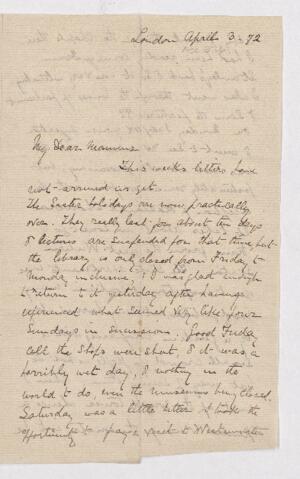 London April 3. 72
My Dear Mamma
This weeks letters have
not arrived as yet.
The Easter holidays are now practically
over. They really last for about ten days
& lectures are suspended for that time but
the library is only closed from Friday to
Monday inclusive; & I was glad enough
to return to it yesterday after having
experienced what seemed very like four
Sundays in succession. Good Friday
all the shops were shut, & it was a
horribly wet day, & nothing in the
world to do, even the museums being closed.
Saturday was a little better. I took the
opportunity to pay a visit to Westminster